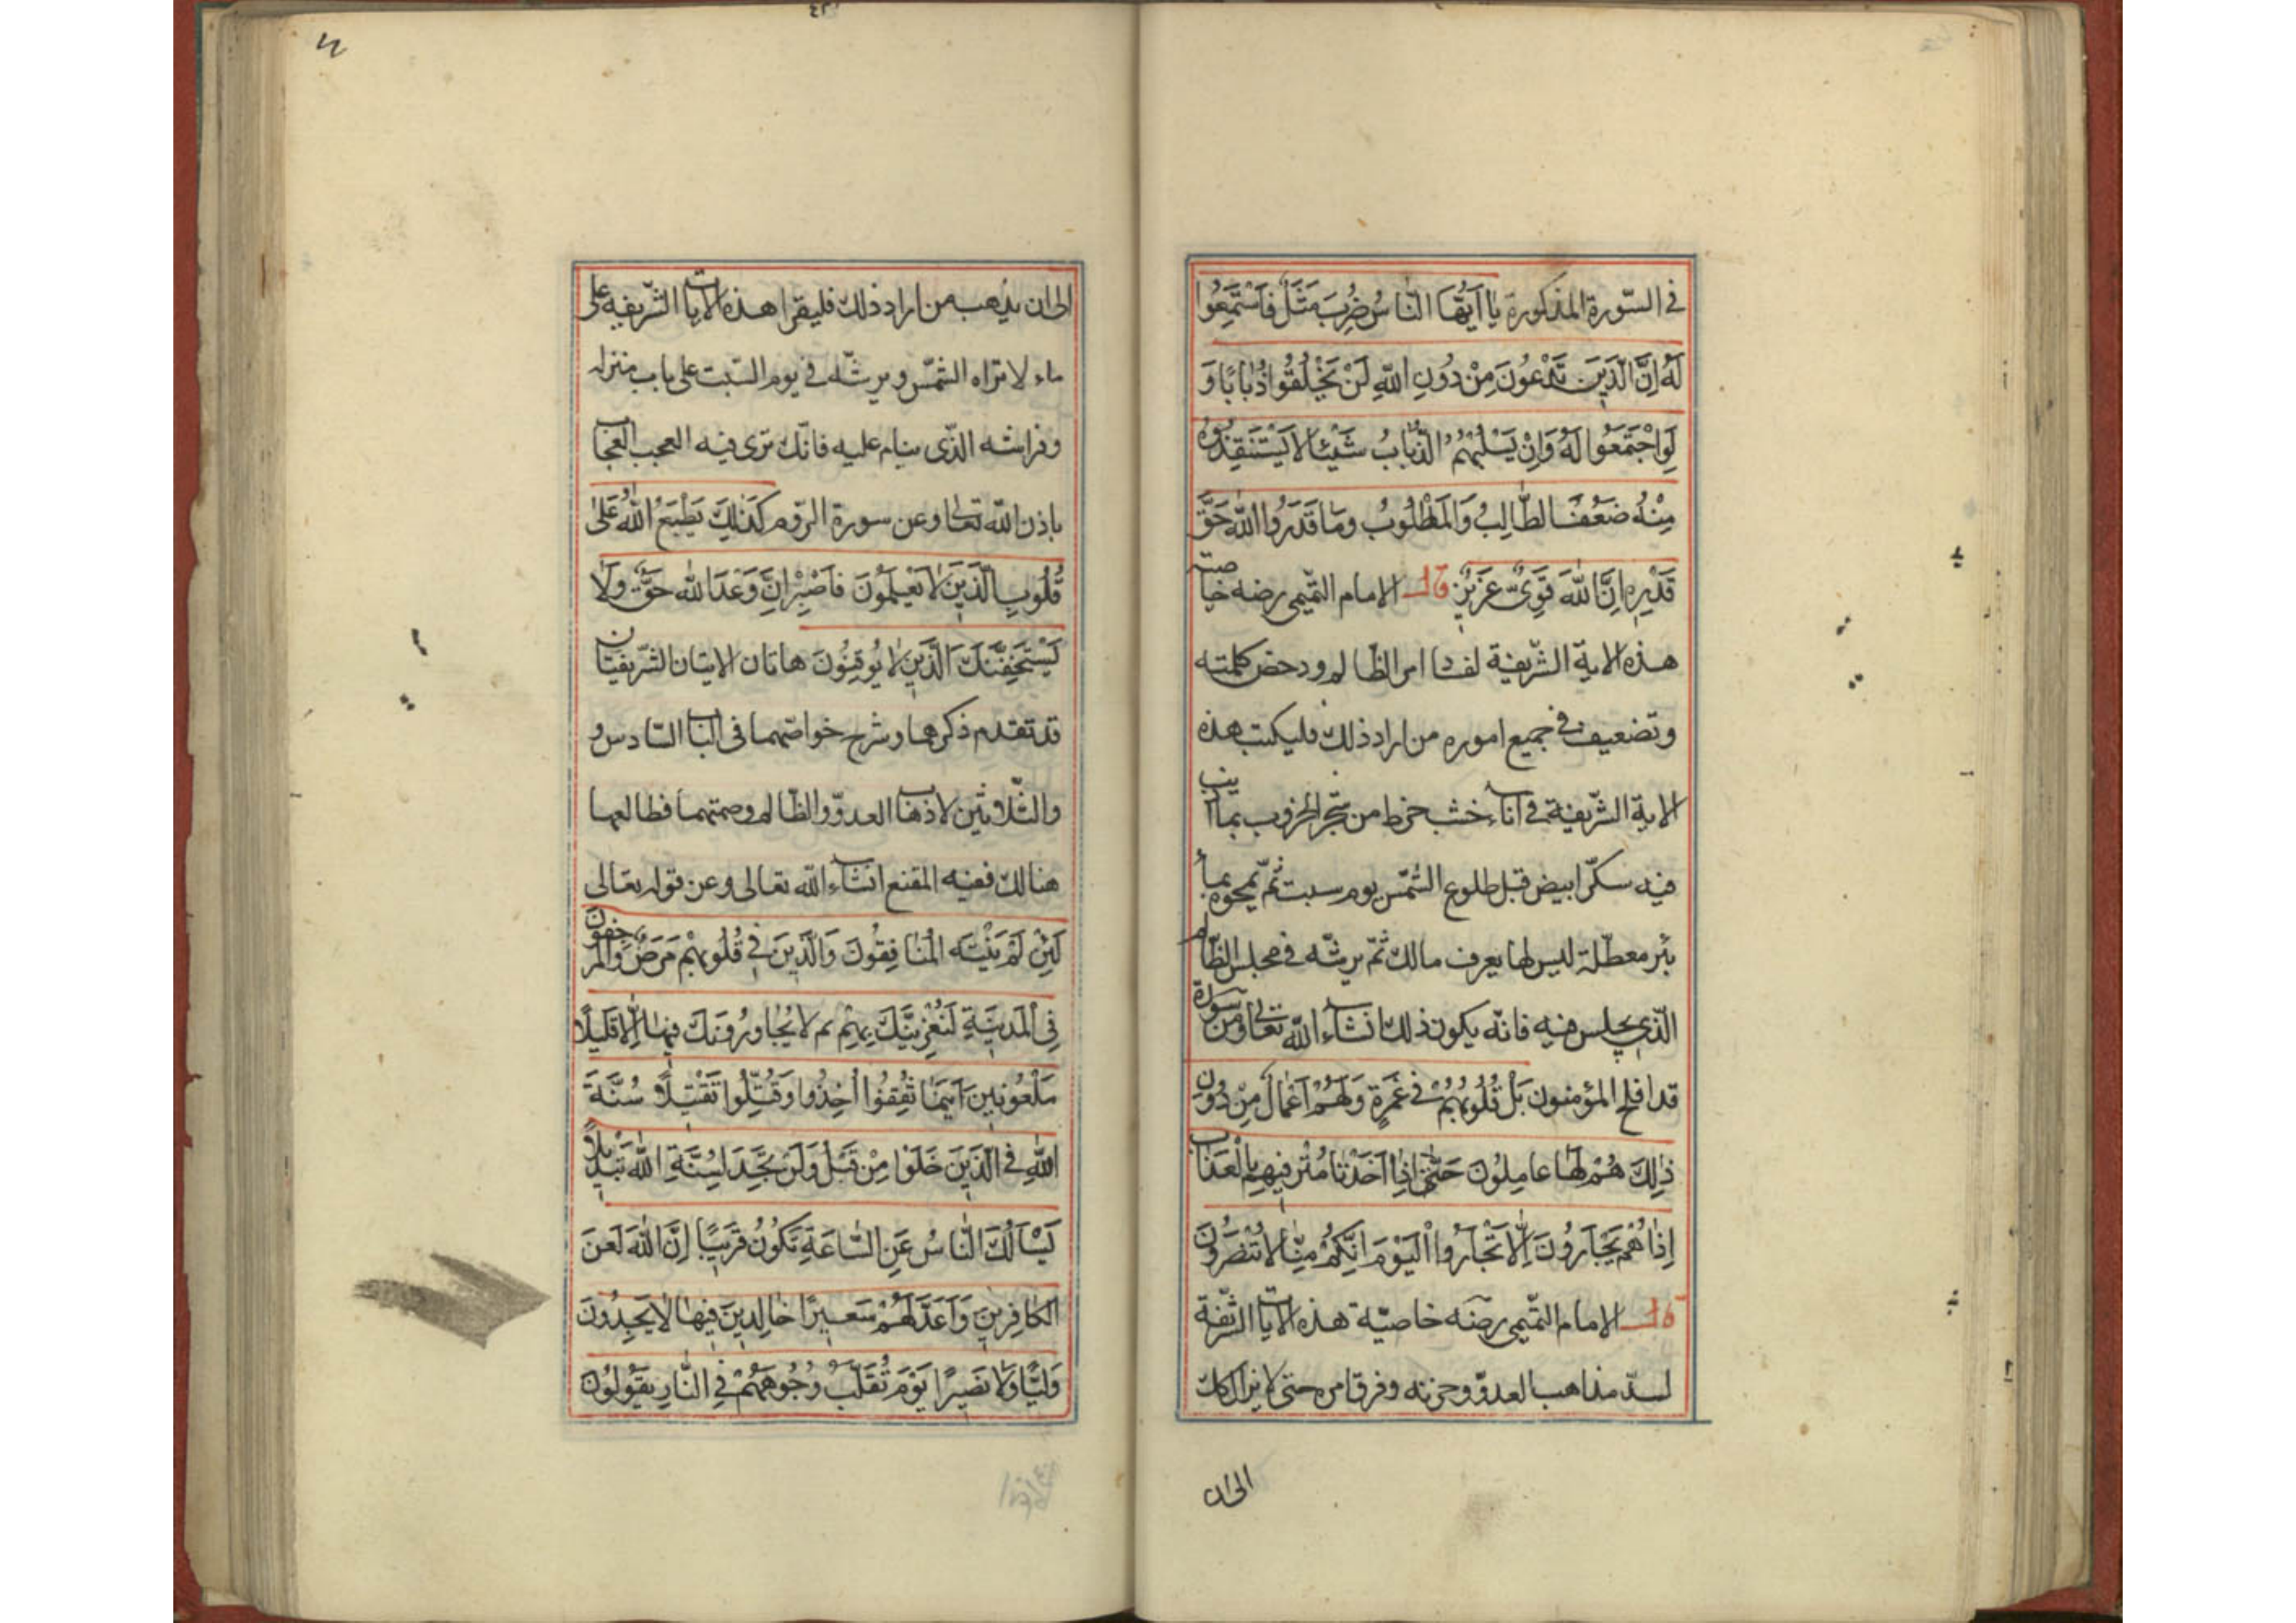 في السّورة المذكورة يَا اَيُّهَا النَّاسُ ضُرِبَ مَثَلٌ فَاسْتَمِعُوا
لَهُ اِنَّ الَّذِينَ تَدْعُونَ مِنْ دُونِ اللّٰهِ لَنْ يَخْلُقُوا ذُبَابًا وَ
لَوِ اجْتَمَعُوا لَهُ وَاِنْ يَسْلُبْهُمُ الذُّبَابُ شَيْئًا لَا يَسْتَنْقِذُوهُ
مِنْهُ ضَعُفَ الطَّالِبُ وَالمَطْلُوبُ وَمَا قَدَرُوا اللّٰهَ حَقَّ
قَدْرِهِ اِنَّ اللّٰهَ قَوِىٌّ عَزِيزٌ قال الامام التّميمى رضه خاصية
هذه الاية الشّريفة لفساد امر الظالم ودحض كلمته
وتضعيف في جميع اموره من اراد ذلك فليكتب هذه
الاية الشّريفة في اناء خشب خرط من شجر الخرّوب بماء اذيب
فيه سكّر ابيض قبل طلوع الشّمس يوم سبت ثمّ يمحوه بماء
بئر معطّلة ليس لها يعرف مالك ثمّ يرشّه في مجلس الظّالم
الّذى يجلس فيه فانّه يكون ذلك انشاء اللّه تعالى ومن سورة
قد افلح المؤمنون بَلْ قُلُوبُهُمْ في غَمْرَةٍ وَلَهُمْ اَعْمَالٌ مِنْ دُونِ
ذٰلِكَ هُمْ لَهَا عَامِلُونَ حَتّٰى اِذَا اَخَذْنَا مُتْرَفِيهِمْ بِالْعَذَابِ
اِذَا هُمْ يَجْاَرُونَ لَا تَجْاَرُوا الْيَوْمَ اِنَّكُمْ مِنَّا لَا تُنْصَرُونَ
قال الامام التّميمى رضه خاصيّة هذه الايات الشّريفة
لسدّ مذاهب العدوّ وحزنه وفرق امره حتى لا يزال كك
الى ان
الى ان يذهب من اراد ذلك فليقرا هذه الايات الشّريفه على
ماء لا تراه الشّمس ويرشّه في يوم السّبت على باب منزله
وفراشه الّذى ينام عليه فانّك ترى فيه العجب العجاب
باذن اللّه تعالى وعن سورة الرّوم كَذٰلِكَ يَطْبَعُ اللّٰهُ عَلٰى
قُلُوبِ الَّذِينَ لَا يَعْلَمُونَ فَاصْبِرْ اِنَّ وَعْدَ اللّٰهِ حَقٌّ وَلَا
يَسْتَخِفَّنَّكَ الَّذِينَ لَا يُوقِنُونَ هاتان الايتان الشّريفتان
قد تقدم ذكرهما وشرح خواصّهما فى الباب السّادس و
والثّلاثين لاذهاب العدوّ والظّالم وصمتهما فطالعهما
هنالك ففيه المقنع انشاء اللّه تعالى وعن قوله تعالى
لَئِنْ لَمْ يَنْتَهِ الْمُنَافِقُونَ وَالَّذِينَ في قُلُوبِهِمْ مَرَضٌ وَالْمُرْجِفُونَ
فِى الْمَدِينَةِ لَنُغْرِيَنَّكَ بِهِمْ ثم لَا يُجَاوِرُونَكَ فِيهَا اِلَّا قَلِيلًا
مَلْعُونِينَ اَيْنَمَا ثُقِفُوا اُخِذُوا وَقُتِّلُوا تَقْتِيلًا سُنَّةَ
اللّٰهِ فِى الَّذِينَ خَلَوْا مِنْ قَبْلُ وَلَنْ تَجِدَ لِسُنَّةِ اللّٰهِ تَبْدِيلًا
يَسْاَلُكَ النَّاسُ عَنِ السَّاعَةِ تَكُونُ قَرِيبًا اِنَّ اللّٰهَ لَعَنَ
الْكَافِرِينَ وَاَعَدَّ لَهُمْ سَعِيرًا خَالِدِينَ فِيهَا لَا يَجِدُونَ
وَلِيًّا وَلَا نَصِيرًا يَوْمَ تُقَلَّبُ وُجُوهُهُمْ فِى النَّارِ يَقُولُونَ